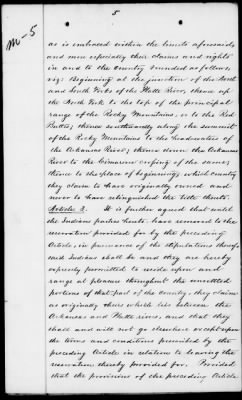 5
M-5
as is embraced within the limits aforesaid
and more especially their claims and rights
in and to the country bounded as follows,
viz: Beginning at the junction of the North
and South Forks of the Platte River, thence up
the North Fork to the top of the principal
range of the Rocky Mountains, or to the Red
Buttes, thence southwardly along the summit
of the Rocky Mountains to the headwaters of
the Arkansas River, thence down the Arkansas
River to the Cimarone crossing of the same,
thence to the place of beginning, which country
they claim to have originally owned and
never to have relinquished the title thereto.
Article 3. It is further agreed that until
the Indians parties hereto, have removed to the
reservation provided for by the preceding
Article, in pursuance of the stipulations thereof,
said Indians shall be and they are hereby
expressly permitted to reside upon and
range at pleasure throughout the unsettled
portions of that part of the country, they claim
as originally theirs which lie between the
Arkansas and Platte rivers, and that they
shall and will not go elsewhere except upon
the terms and conditions prescribed by the
preceding Article in relation to leaving the
reservation thereby provided for. Provided
that the provisions of the preceding Article